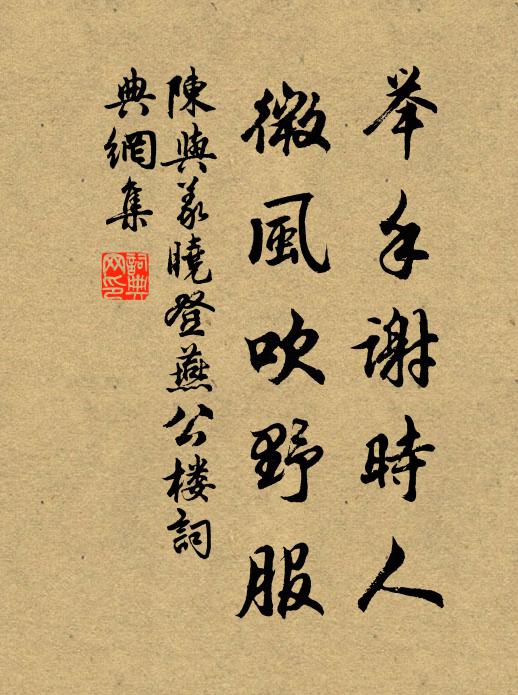 举手謝時人
微風吹野服
陳與義曉登燕公楼詞
典網集
詞典网印